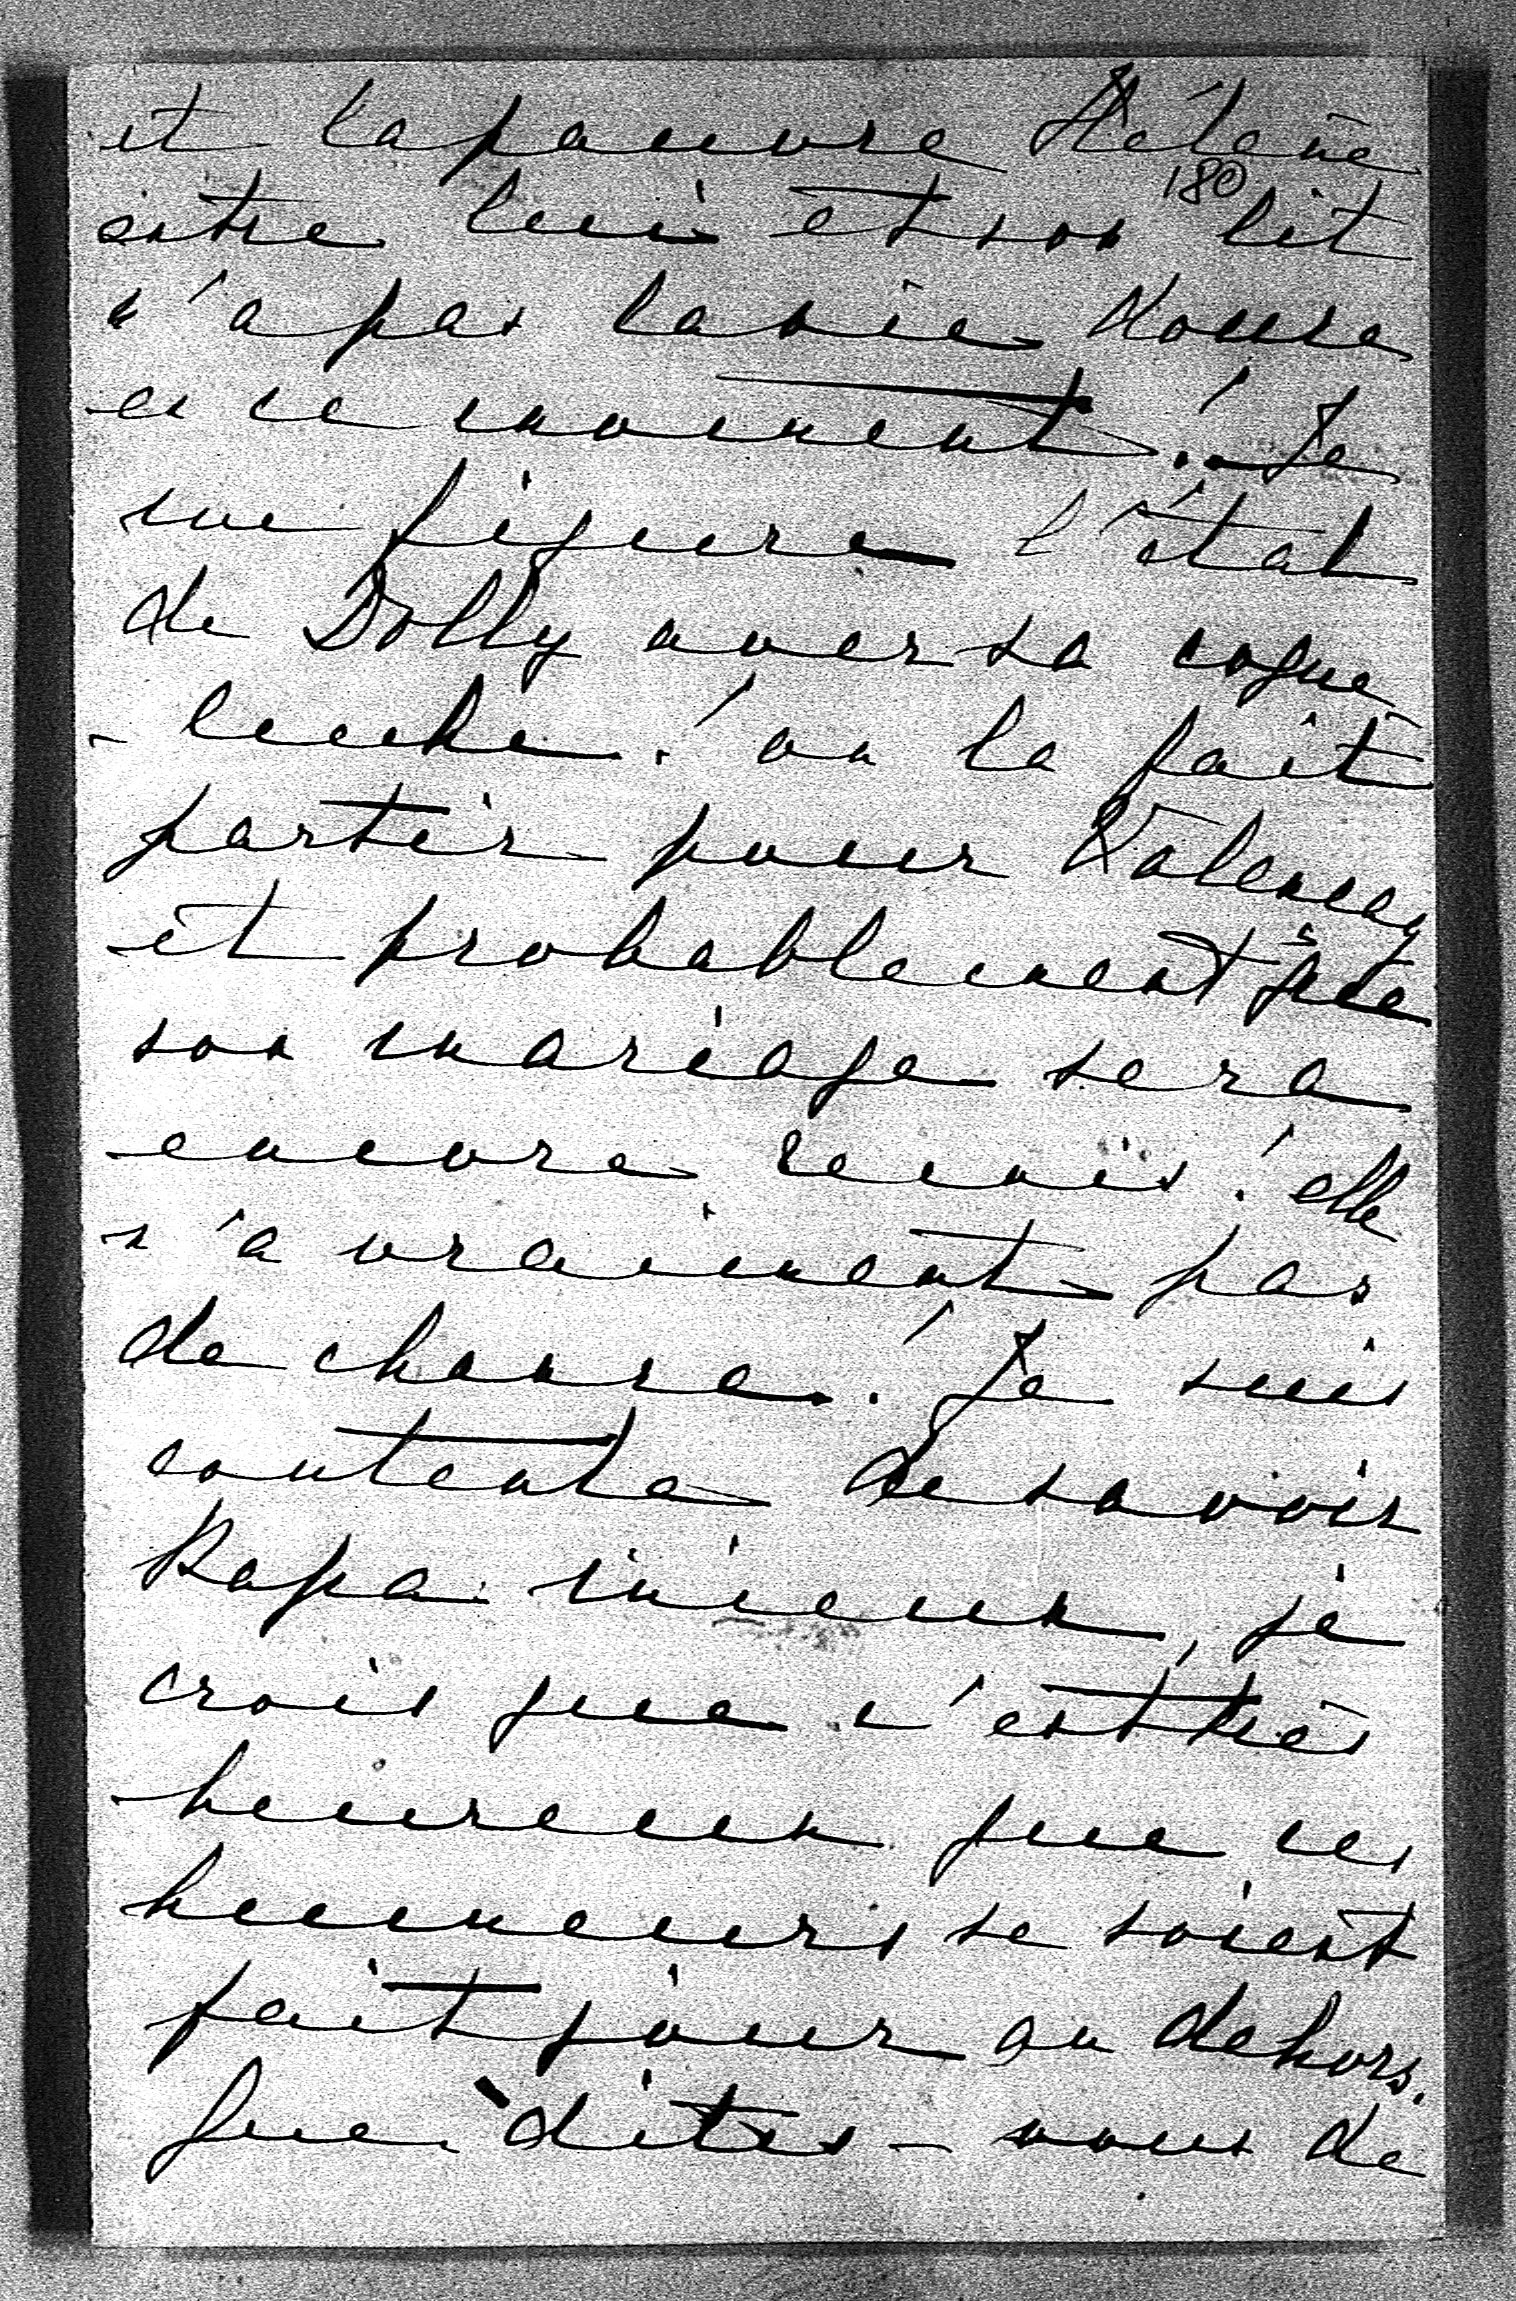 et la pauvre Hélène
180
entre lui et son lit
n'a pas la vie douce
en ce moment! Je
me figure l'état
de Dolly avec sa coque
-luche! on la fait
partir pour Valençay
et probablement que
son mariage sera
encore remis! elle
n'a vraiment pas
de chance! Je suis
contente de savoir
Papa mieux, je
crois que c'est très
heureux que ces
humeurs se soient
fait jour au dehors.
Que dites-vous de